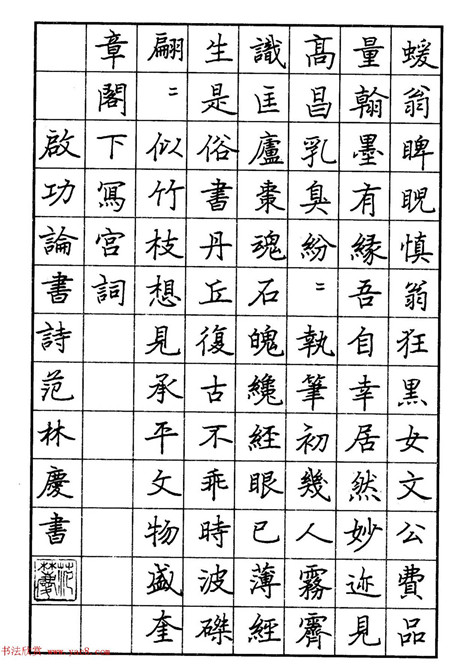 蝯翁睥睨慎翁狂黑女文公費品
量翰墨有緣吾自幸居然妙迹見
高昌乳臭紛〻執筆初幾人霧霽
識匡廬棗魂石魄纔經眼已薄經
生是俗書丹丘復古不乖時波磔
翩〻似竹枝想見承平文物盛奎
章閣下寫宮詞
啟功論書詩范林慶書
书法欣赏 www.yac8.com